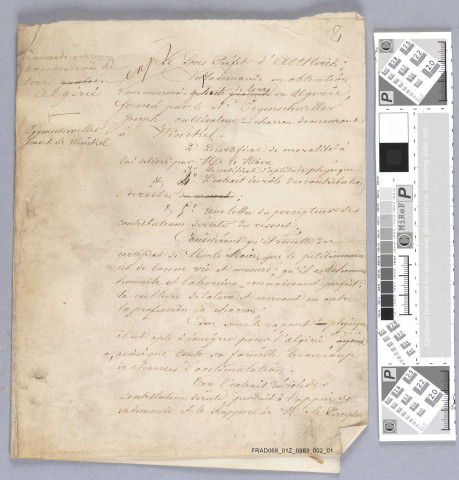 2
Demande
concession de
terre
Algérie
Eggenschwiller
Joseph de Winckel
Le Sous Préfet d'Altkirch
Vu la demande en obtention
d'une concession de terre en Algérie,
formée par le Sr Eggenschwiller
Joseph cultivateur charron demeurant
à Winckel.
2° Le certificat de moralité à
lui délivré par Mr le Maire
3° Le certificat d'aptitude physique
4° L'extrait du rôle des contributions
directes
5° une lettre du percepteur des
contributions directes du ressort.
Considérant qu'il résulte du
certificat de Mr le Maire, que le pétitionnaire
est de bonne vie et mœurs; qu'il est homme
honnête et laborieux, connaissant parfaitement
la culture des terres et exerçant en outre
la profession de charron.
Que sous le rapport physique
il est apte à émigrer pour l'Algérie ayant
ainsi que toute sa famille beaucoup
de chances d'acclimatation.
Que l'extrait du rôle des
contributions directes produit à l'appui de
sa demande et le rapport de Mr le Percepteur
FRAD068_01Z_0383_002_01
MiReF
P
P